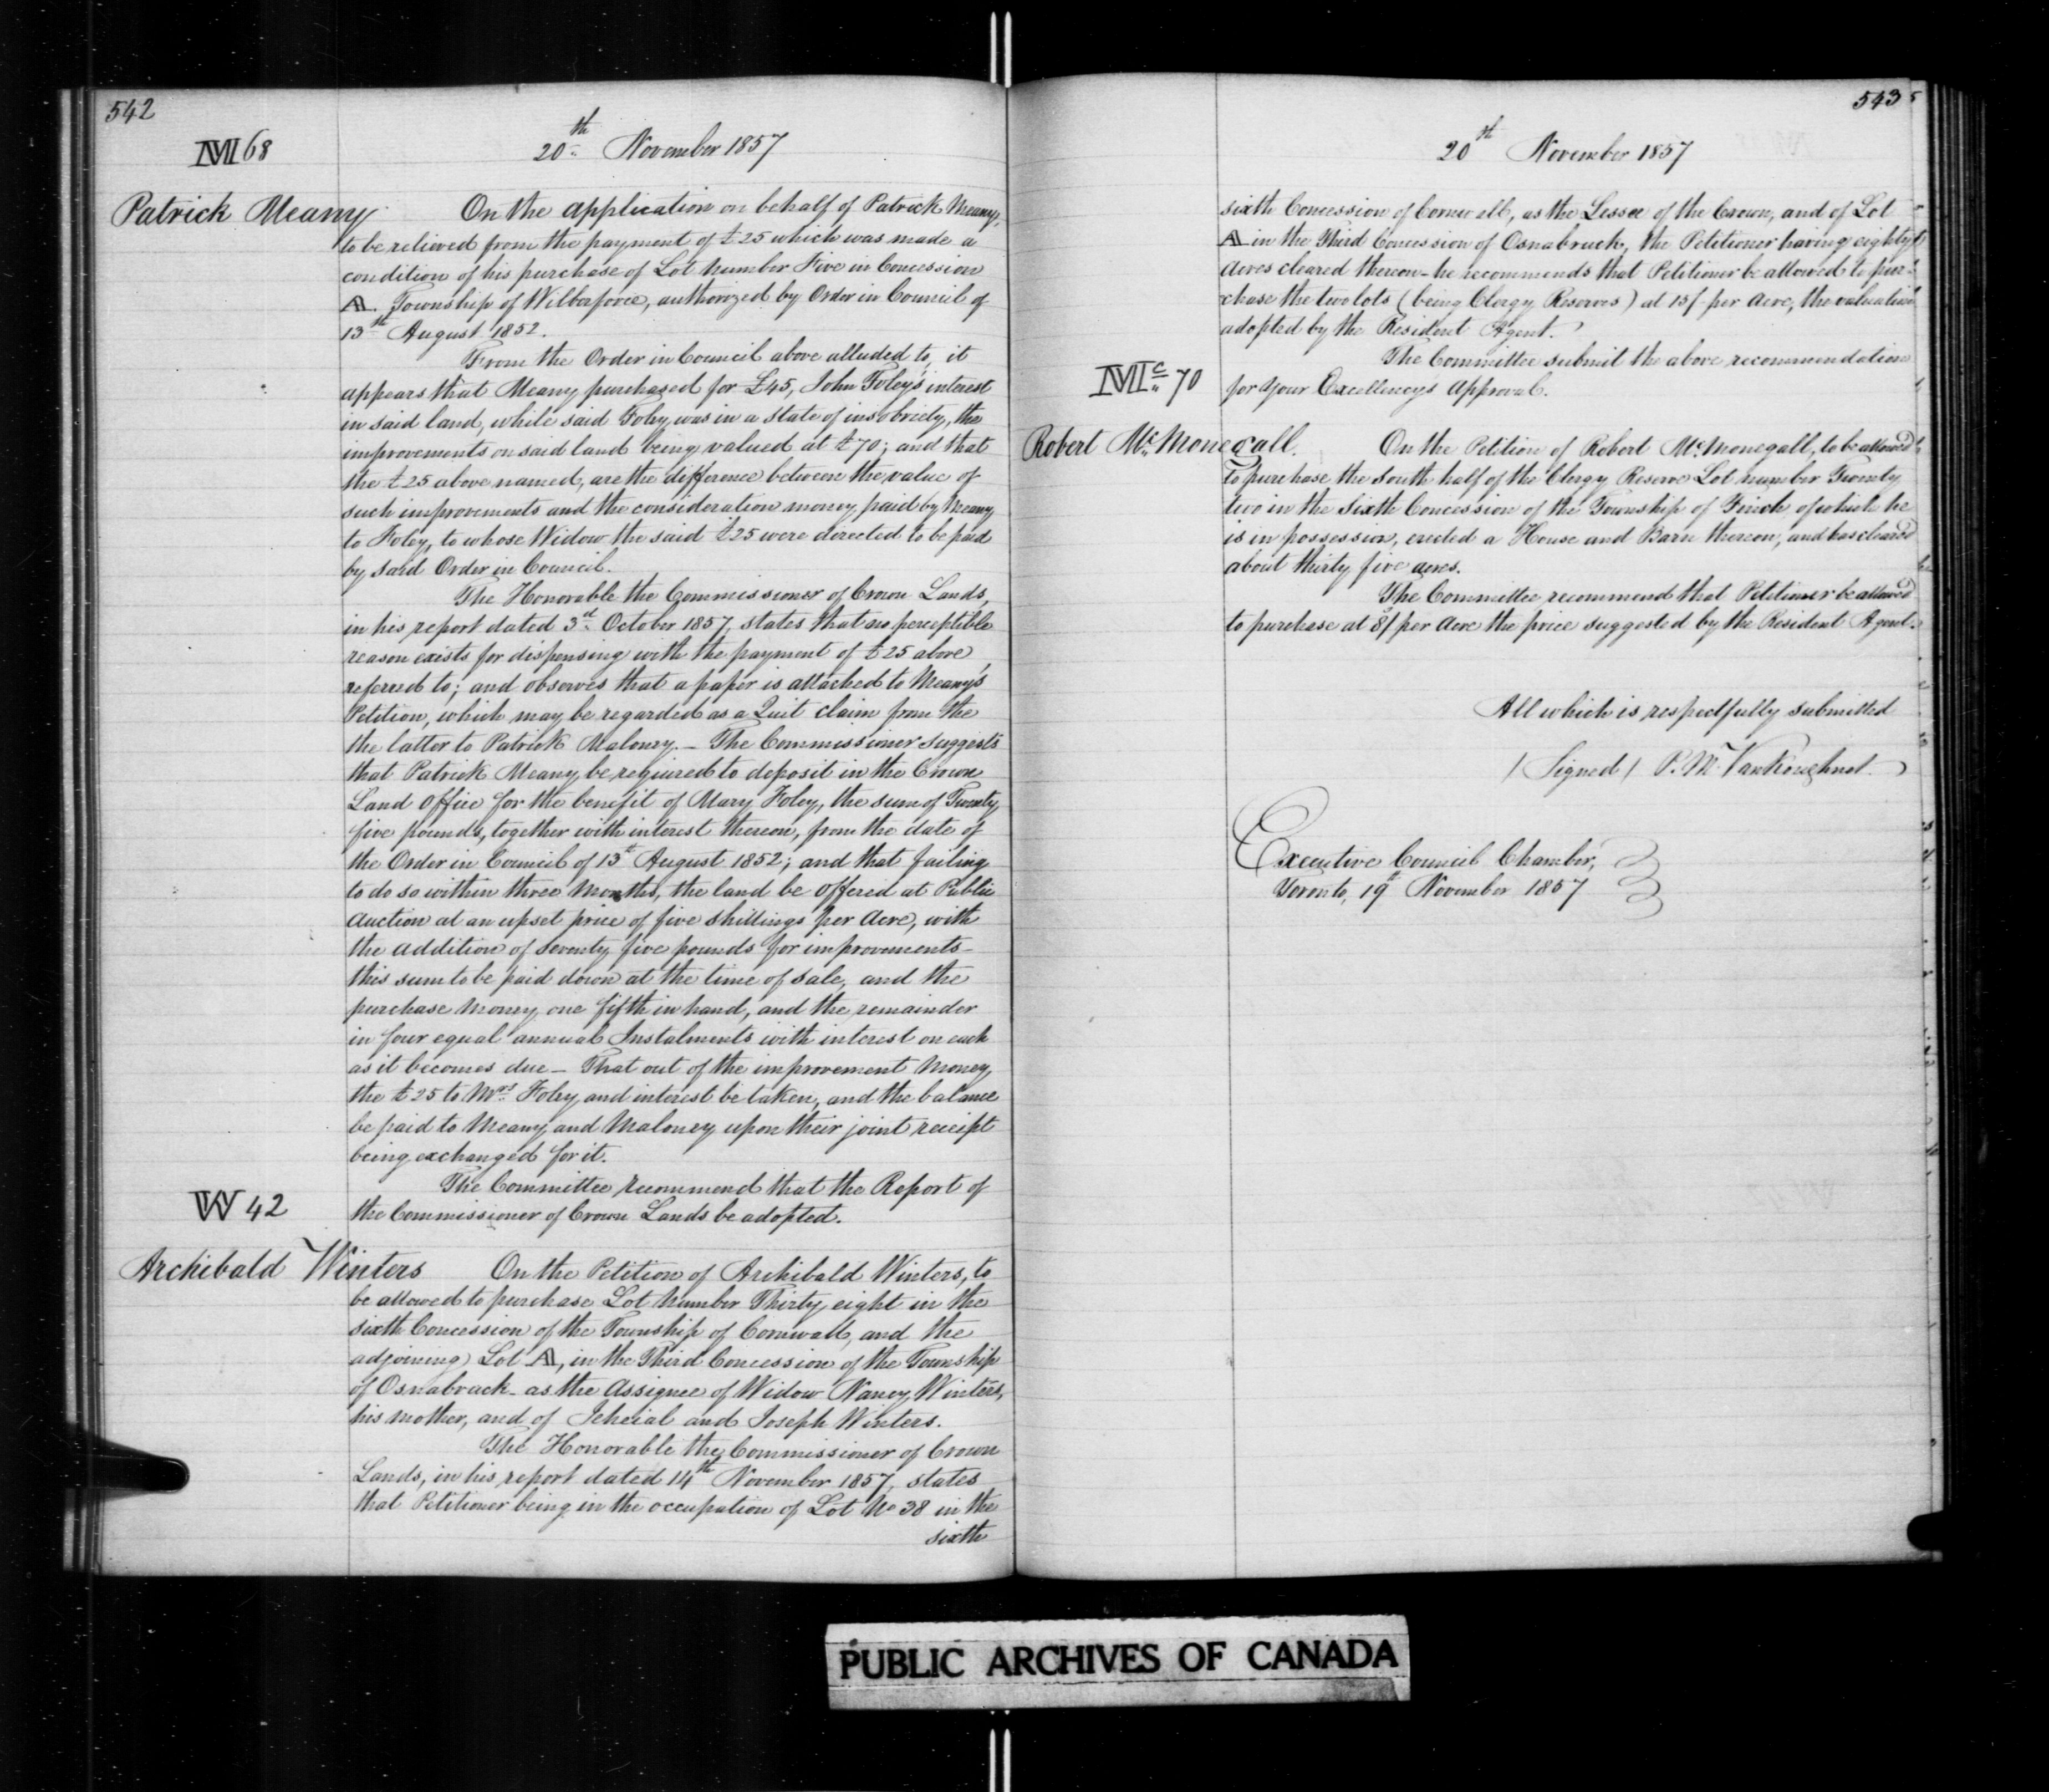 542
M 68
20th November 1857
Patrick Meany
On the application on behalf of Patrick Meany,
to be relieved from the payment of £25 which was made a
condition of his purchase of Lot number Five in Concession
A. Township of Wilberforce, authorized by Order in Council of
13th August 1852.
From the Order in Council above alluded to, it
appears that Meany purchased for £45, John Foley's interest
in said land, while said Foley was in a state of insobriety, the
improvements on said land being valued at £70; and that
the £25 above named, are the difference between the value of
such improvements and the consideration money paid by Meany
to Foley, to whose Widow the said £25 were directed to be paid
by said Order in Council.
The Honorable the Commissioner of Crown Lands,
in his report dated 3rd October 1857, states that no perceptible
reason exists for dispensing with the payment of £25 above
referred to; and observes that a paper is attached to Meany's
Petition, which may be regarded as a Quit claim from the
the latter to Patrick Maloney. — The Commissioner suggests
that Patrick Meany be required to deposit in the Crown
Land Office for the benefit of Mary Foley, the sum of Twenty
five pounds, together with interest thereon, from the date of
the Order in Council of 13th August 1852; and that failing
to do so within three Months, the land be offered at Public
Auction at an upset price of five shillings per Acre, with
the addition of seventy five pounds for improvements —
this sum to be paid down at the time of sale, and the
purchase Money one fifth in hand, and the remainder
in four equal annual Instalments with interest on each
as it becomes due — That out of the improvement Money
the £25 to Mrs Foley and interest be taken, and the balance
be paid to Meany and Maloney upon their joint receipt
being exchanged for it.
The Committee recommend that the Report of
the Commissioner of Crown Lands be adopted.
W 42
Archibald Winters
On the Petition of Archibald Winters, to
be allowed to purchase Lot Number Thirty eight in the
sixth Concession of the Township of Cornwall, and the
adjoining Lot A, in the Third Concession of the Township
of Osnabruck — as the Assignee of Widow Nancy Winters,
his mother, and of Jeheial and Joseph Winters.
The Honorable the Commissioner of Crown
Lands, in his report dated 14th November 1857, states
that Petitioner being in the occupation of Lot No 38 in the
sixth
543
20th November 1857
sixth Concession of Cornwall, as the Lessee of the Crown, and of Lot
A in the Third Concession of Osnabruck, the Petitioner having eighty
Acres cleared thereon — he recommends that Petitioner be allowed to pur-
chase the two lots (being Clergy Reserves) at 15/ per Acre, the valuation
adopted by the Resident Agent.
The Committee submit the above recommendation
for Your Excellency's Approval.
Mc 70
Robert Mc Monegall.
On the Petition of Robert McMonegall, to be allowed
to purchase the South half of the Clergy Reserve Lot number Twenty
two in the Sixth Concession of the Township of Finch of which he
is in possession, erected a House and Barn thereon, and has cleared
about thirty five acres.
The Committee recommend that Petitioner be allowed
to purchase at 8/ per Acre the price suggested by the Resident Agent.
All which is respectfully submitted
(Signed) P. M. VanKoughnet.
Executive Council Chamber,
Toronto, 19th November 1857
PUBLIC ARCHIVES OF CANADA